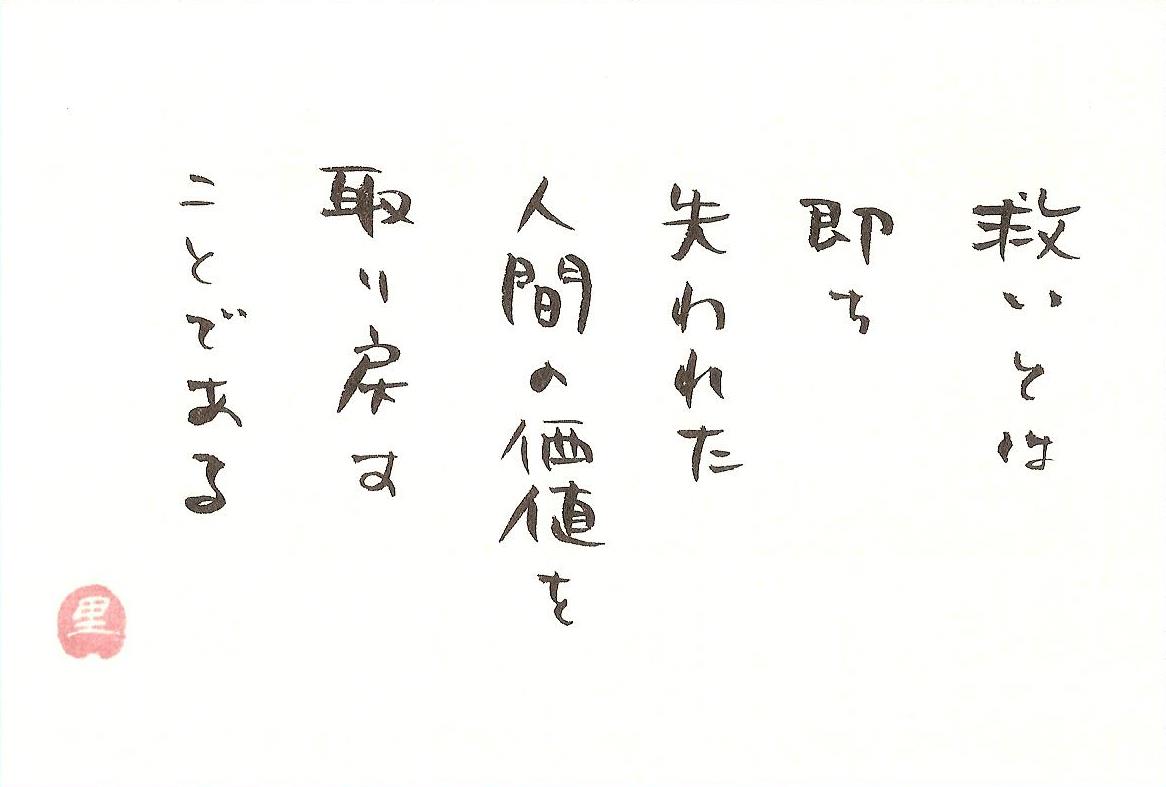 救いとは
即ち
失われた
人間の価値を
取り戻す
ことである
里